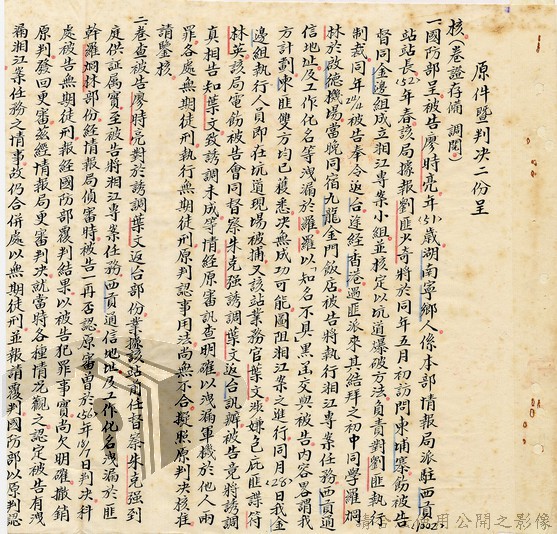 原件暨判决二份呈
核(卷證存備調閱)
一、國防部呈被告廖時亮年(51)歲湖南寧鄉人係本部情報局派駐西貢(1002)
站站長(52)年春該局據報劉匪少奇將於同年五月初訪問柬埔寨飭被告
督同金邊組成立湘江專案小組並核定以坑道爆破方法負責對劉匪執行
制裁同年24/4被告奉令返台途經香港遇匪派來其結拜之初中同學羅烱
林於啟德機場當晚同宿九龍金門飯店被告將執行湘江專案任務西貢通
信地址及工作化名等洩漏於羅羅以「知名不具」黑函交與被告內容畧謂我
方計劃柬匪雙方均已獲悉决無成功可能圖阻湘江案之進行同月(28)日我金
邊組執行人員即在坑道現場被捕又該站業務官葉文涉嫌包庇匪諜符
林英該局電飭被告會同督察朱克強誘調葉文返台訊辦被告竟將誘調
真相告知葉文致誘調未成等情經原審訊查明確以洩漏軍機於他人兩
罪各處無期徒刑執行無期徒刑原判認事用法尚無不合擬照原判决核准
請鑒核
二、卷查被告廖時亮對於誘調葉文返台部份業據該站前任督察朱克强到
庭供証屬實至被告將湘江專案任務西貢通信地址及工作化名洩漏於匪
幹羅烱林部份經情報局偵審時被告一再否認原審曾於(56)年18/7日判决科
處被告無期徒刑報經國防部覆判結果以被告犯罪事實尚欠明確撤銷
原判發回更審茲經情報局更審判决就當時各種情况觀之認定被告有洩
漏湘江案任務之情事故仍合併處以無期徒刑並報請覆判國防部以原判認
請合理使用公開之影像